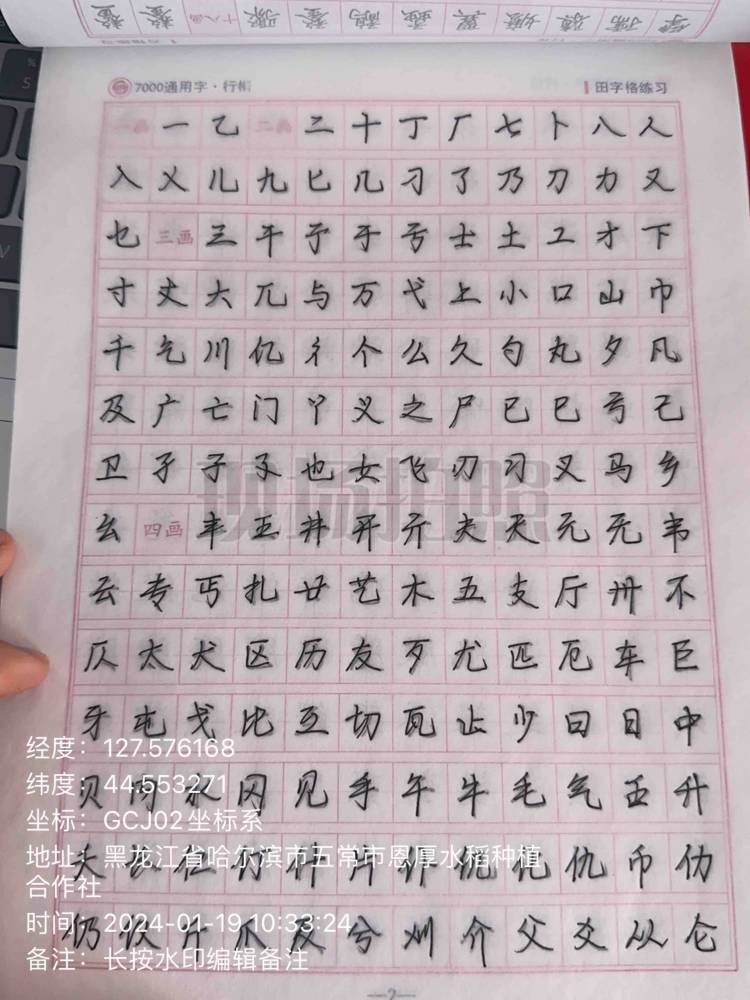 十八画
7000通用字·行楷
田字格练习
一画 一 乙 二画 二 十 丁 厂 七 卜 八 人
入 乂 儿 九 匕 几 刁 了 乃 刀 力 又
乜 三画 三 干 亍 于 亏 士 土 工 才 下
寸 丈 大 兀 与 万 弋 上 小 口 山 巾
千 乞 川 亿 彳 个 么 久 勺 丸 夕 凡
及 广 亡 门 丫 义 之 尸 已 巳 弓 己
卫 孑 子 孓 也 女 飞 刃 习 叉 马 乡
幺 四画 丰 王 井 开 亓 夫 天 元 无 韦
云 专 丐 扎 廿 艺 木 五 支 厅 卅 不
仄 太 犬 区 历 友 歹 尤 匹 厄 车 巨
牙 屯 戈 比 互 切 瓦 止 少 曰 日 中
贝 内 水 冈 见 手 午 牛 毛 气 壬 升
夭 仁 什 片 仆 化 仇 币 仂
仍 仅 斤 爪 反 兮 刈 介 父 爻 从 仑
现场拍照
经度：127.576168
纬度：44.553271
坐标：GCJ02坐标系
地址：黑龙江省哈尔滨市五常市恩厚水稻种植
合作社
时间：2024-01-19 10:33:24
备注：长按水印编辑备注
2